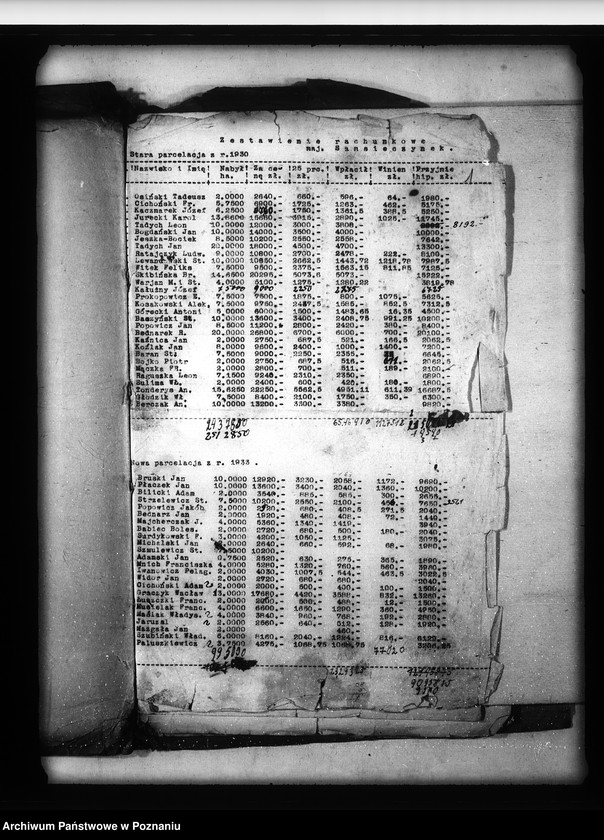 Zestawienie rachunkowe
maj. Samsieczynek.
Stara parcelacja z r.1930
Nazwisko i Imię Nabył ha. Za cenę zł. 25 proc. zł. Wpłacił zł. Winien zł. Przyjmie hip. zł.
Osiński Tadeusz 2.0000 2640.- 660.- 596.- 64.- 1980.-
Cichoński Fr. 5.7500 6900.- 1725.- 1263.- 462.- 5175.-
Kaczmarek Józef 6.2500 1750.- 1361.5 388.5 5250.-
Jurecki Karol 13.0000 3915.- 2890.- 1025.- 11745.-
Tadych Leon 10.0000 12000.- 3000.- 3808.- 8192.-
Bogdański Jan 10.0000 14000.- 3500.- 4000.- 10000.-
Jeszka-Bociek 8.5000 10200.- 2550.- 2558.- 7642.-
Tadych Jan 20.0000 18000.- 4500.- 4700.- 13300.-
Ratajczyk Ludw. 9.0000 10800.- 2700.- 2478.- 222.- 8100.-
Lewandowski St. 10.0000 10650.- 2662.5 1443.72 1218.78 7987.5
Witek Feliks 7.5000 9500.- 2375.- 1563.15 811.85 7125.-
Skibińska Br. 14.6500 20295.- 5073.6 5073.- 15222.-
Warjan M.i St. 4.0000 5100.- 1275.- 1280.22 3819.78
Kałużny Józef
Prokopowicz K. 7.5000 7500.- 1875.- 800.- 1075.- 5625.-
Kosakowski Alek. 7.5000 9750.- 2437.5 1585.- 852.5 7312.5
Górecki Antoni 5.0000 6000.- 1500.- 1483.65 16.35 4500.-
Baszyński St. 10.0000 13600.- 3400.- 2408.75 991.25 10200.-
Popowicz Jan 8.5000 11200.- 2800.- 2420.- 380.- 8400.-
Bednarek R. 20.0000 26800.- 6700.- 6000.- 700.- 20100.-
Kaźnica Jan 2.0000 2750.- 687.5 521.- 166.5 2062.5
Koźlak Jan 8.0000 9600.- 2400.- 1000.- 1400.- 7200.-
Baran St. 7.5000 9000.- 2250.- 2355.- 6645.-
Bojko Piotr 2.0000 2750.- 687.5 516.- 2062.5
Mączka FR. 2.0000 2800.- 700.- 511.- 189.- 2100.-
Raguszka Leon 7.1500 9240.- 2310.- 2350.-
Sulima Wł. 2.0000 2400.- 600.- 420.- 180.- 1800.-
Tonderys An. 15.6250 22250.- 5562.5 4951.11 611.39 16687.5
Głodzik Wł. 7.5000 8400.- 2100.- 1750.- 350.- 6300.-
Berczak An. 10.0000 13200.- 3300.- 3380.- 9820.-
Nowa parcelacja z r. 1933.
Bruski Jan 10.0000 12920.- 3230.- 2058.- 1172.- 9690.-
Płaczek Jan 10.0000 13600.- 3400.- 2040.- 1360.- 10200.-
Bilicki Adam 2.0000 3540.- 885.- 585.- 300.- 2655.-
Strzelewicz St. 7.5000 10200.- 2550.- 2100.- 450.- 7650.-
Popowicz Jakób 2.0000 680.- 408.5 271.5 2040.-
Bednarz Jan 2.0000 1920.- 480.- 408.- 72.- 1440.-
Majcherczak J. 4.0000 5360.- 1340.- 1419.- 3940.-
Babiec Boles. 2.0000 2720.- 680.- 500.- 180.- 2040.-
Surdykowski F. 3.0000 4200.- 1050.- 1125.- 3075.-
Michalski Jan 2640.- 660.- 592.- 68.- 1980.-
Szmulewicz St. 8.5000 10200.-
Adamski Jan 0.7500 2520.- 630.- 275.- 355.- 1890.-
Mnich Franciszka 4.0000 5280.- 1320.- 760.- 560.- 3920.-
Iwanowicz Pelag. 2.0000 4030.- 1007.5 544.- 463.5 3022.5
Widor Jan 2.0000 2720.- 680.- 680.- 2040.-
Cichoński Adam 2.0000 2000.- 500.- 400.- 100.- 1500.-
Graczyk Wacław 13.0000 17680.- 4420.- 3588.- 832.- 13260.-
Burecki Franc. 2.0000 2000.- 500.- 488.- 12.- 1500.-
Musielak Franc. 4.0000 6600.- 1650.- 1290.- 360.- 4950.-
Maślak Władys. 4.0000 3840.- 960.- 768.- 192.- 2880.-
Januzal 2.0000 2560.- 640.- 512.- 128.- 1920.-
Małgola Jan 2.0000 460.-
Szubiński Wład. 6.0000 8160.- 2040.- 1224.- 816.- 6120.-
Paluszkiewicz 3.7500 4275.- 1068.75 1068.75 3206.25
Archiwum Państwowe w Poznaniu